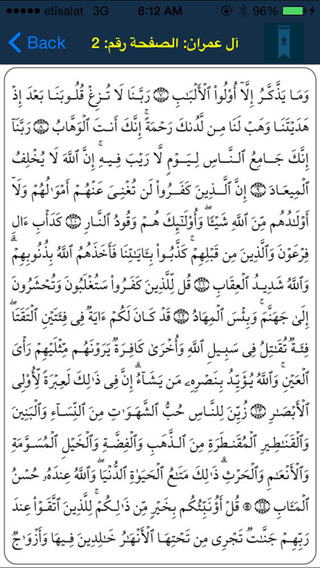 etisalat 3G 6:12 AM 96%
Back آل عمران: الصفحة رقم: 2
وَمَا يَذَّكَّرُ إِلَّآ أُوْلُواْ ٱلۡأَلۡبَٰبِ ٧ رَبَّنَا لَا تُزِغۡ قُلُوبَنَا بَعۡدَ إِذۡ
هَدَيۡتَنَا وَهَبۡ لَنَا مِن لَّدُنكَ رَحۡمَةًۚ إِنَّكَ أَنتَ ٱلۡوَهَّابُ ٨ رَبَّنَآ
إِنَّكَ جَامِعُ ٱلنَّاسِ لِيَوۡمٖ لَّا رَيۡبَ فِيهِۚ إِنَّ ٱللَّهَ لَا يُخۡلِفُ
ٱلۡمِيعَادَ ٩ إِنَّ ٱلَّذِينَ كَفَرُواْ لَن تُغۡنِيَ عَنۡهُمۡ أَمۡوَٰلُهُمۡ وَلَآ
أَوۡلَٰدُهُم مِّنَ ٱللَّهِ شَيۡـٔٗاۖ وَأُوْلَٰٓئِكَ هُمۡ وَقُودُ ٱلنَّارِ ١٠ كَدَأۡبِ ءَالِ
فِرۡعَوۡنَ وَٱلَّذِينَ مِن قَبۡلِهِمۡۚ كَذَّبُواْ بِـَٔايَٰتِنَا فَأَخَذَهُمُ ٱللَّهُ بِذُنُوبِهِمۡۗ
وَٱللَّهُ شَدِيدُ ٱلۡعِقَابِ ١١ قُل لِّلَّذِينَ كَفَرُواْ سَتُغۡلَبُونَ وَتُحۡشَرُونَ
إِلَىٰ جَهَنَّمَۖ وَبِئۡسَ ٱلۡمِهَادُ ١٢ قَدۡ كَانَ لَكُمۡ ءَايَةٞ فِي فِئَتَيۡنِ ٱلۡتَقَتَاۖ
فِئَةٞ تُقَٰتِلُ فِي سَبِيلِ ٱللَّهِ وَأُخۡرَىٰ كَافِرَةٞ يَرَوۡنَهُم مِّثۡلَيۡهِمۡ رَأۡيَ
ٱلۡعَيۡنِۚ وَٱللَّهُ يُؤَيِّدُ بِنَصۡرِهِۦ مَن يَشَآءُۚ إِنَّ فِي ذَٰلِكَ لَعِبۡرَةٗ لِّأُوْلِي
ٱلۡأَبۡصَٰرِ ١٣ زُيِّنَ لِلنَّاسِ حُبُّ ٱلشَّهَوَٰتِ مِنَ ٱلنِّسَآءِ وَٱلۡبَنِينَ
وَٱلۡقَنَٰطِيرِ ٱلۡمُقَنطَرَةِ مِنَ ٱلذَّهَبِ وَٱلۡفِضَّةِ وَٱلۡخَيۡلِ ٱلۡمُسَوَّمَةِ
وَٱلۡأَنۡعَٰمِ وَٱلۡحَرۡثِۗ ذَٰلِكَ مَتَٰعُ ٱلۡحَيَوٰةِ ٱلدُّنۡيَاۖ وَٱللَّهُ عِندَهُۥ حُسۡنُ
ٱلۡمَـَٔابِ ١٤ ۞ قُلۡ أَؤُنَبِّئُكُم بِخَيۡرٖ مِّن ذَٰلِكُمۡۖ لِلَّذِينَ ٱتَّقَوۡاْ عِندَ
رَبِّهِمۡ جَنَّٰتٞ تَجۡرِي مِن تَحۡتِهَا ٱلۡأَنۡهَٰرُ خَٰلِدِينَ فِيهَا وَأَزۡوَٰجٞ